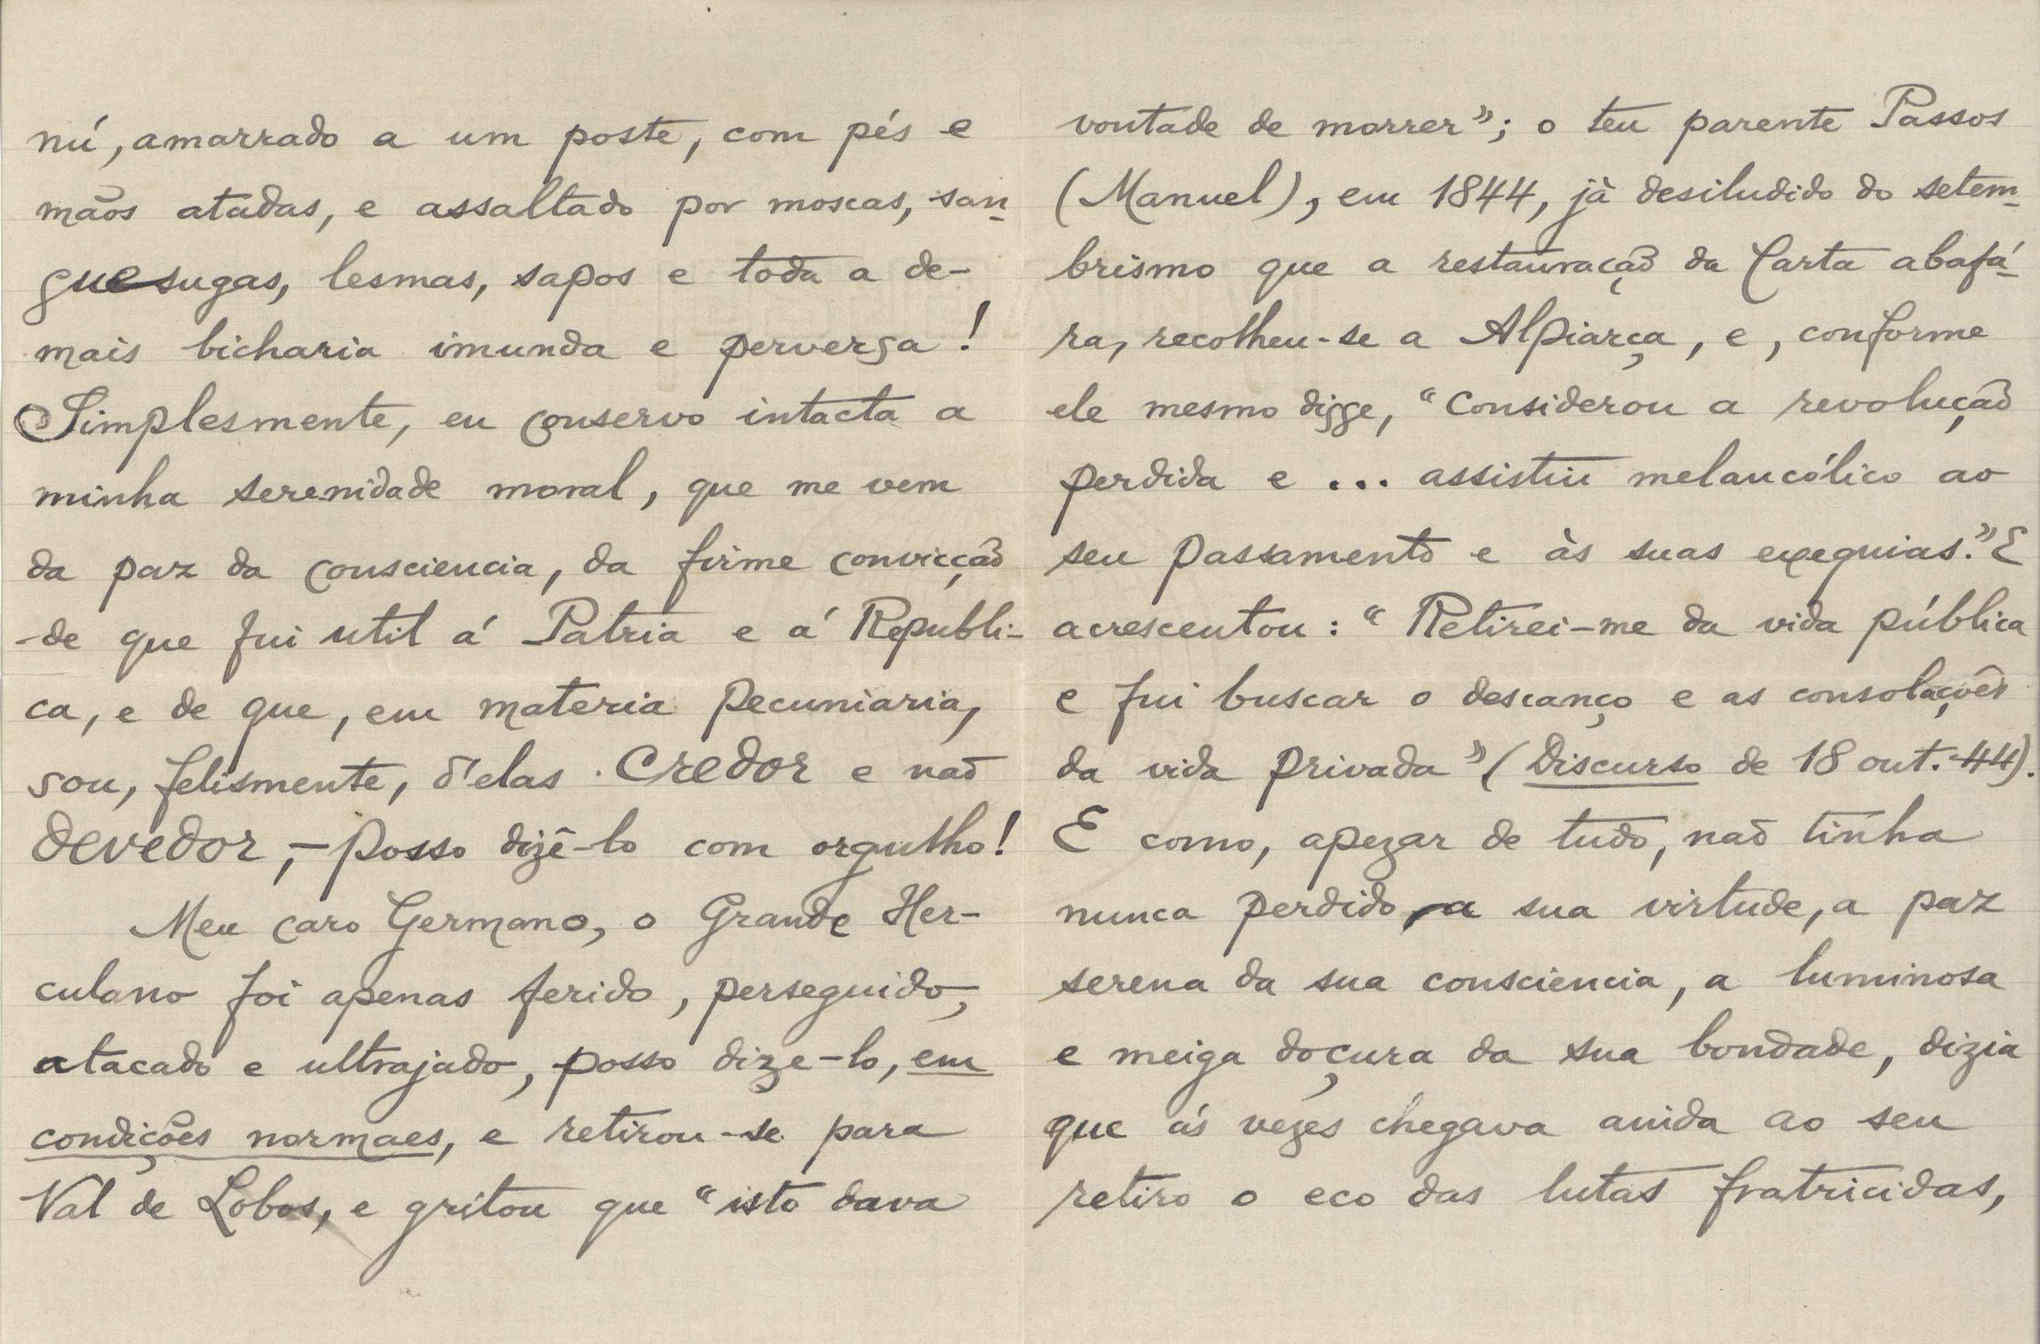 nú, amarrado a um poste, com pés e
mãos atadas, e assaltado por moscas, san-
guesugas, lesmas, sapos e toda a de-
mais bicharia imunda e perversa!
Simplesmente, eu conservo intacta a
minha serenidade moral, que me vem
da paz da consciencia, da firme convicção
de que fui util á Patria e á Republi-
ca, e de que, em materia pecuniaria,
sou, felismente, d'elas credor e não
devedor,- posso dizê-lo com orgulho!
Meu caro Germano, o Grande Her-
culano foi apenas ferido, perseguido,
atacado e ultrajado, posso dize-lo, em
condições normaes, e retirou-se para
Val de Lobos, e gritou que "isto dava
vontade de morrer"; o teu parente Passos
(Manuel), em 1844, já desiludido do setem-
brismo que a restauração da Carta abafá-
ra, recolheu-se a Alpiarça, e, conforme
ele mesmo disse, "considerou a revolução
perdida e ... assistiu melancólico ao
seu passamento e às suas exequias." E
acrescentou: "Retirei-me da vida pública
e fui buscar o descanço e as consolações
da vida privada" (Discurso de 18 out.-44).
E como, apezar de tudo, não tinha
nunca perdido, a sua virtude, a paz
serena da sua consciencia, a luminosa
e meiga doçura da sua bondade, dizia
que ás vezes chegava ainda ao seu
retiro o eco das lutas fratricidas,